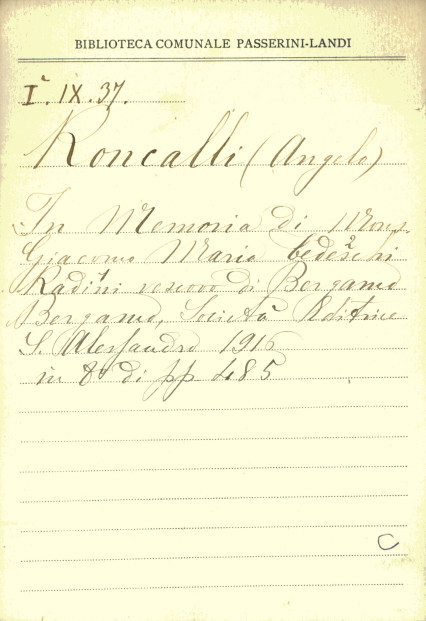 BIBLIOTECA COMUNALE PASSERINI-LANDI
Iª. IX. 37.
Roncalli (Angelo)
In Memoria di Mons.
Giacomo Maria Tedeschi
Radini vescovo di Bergamo
Bergamo, Società Editrice
S. Alessandro 1916
in 8º di pp 485
C